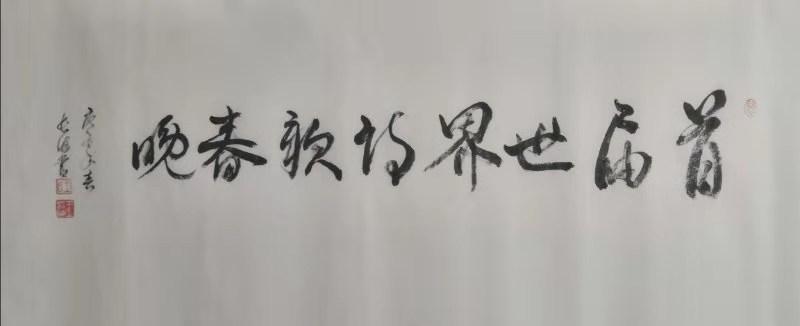 首届世界诗歌春晚
庚子年春
书